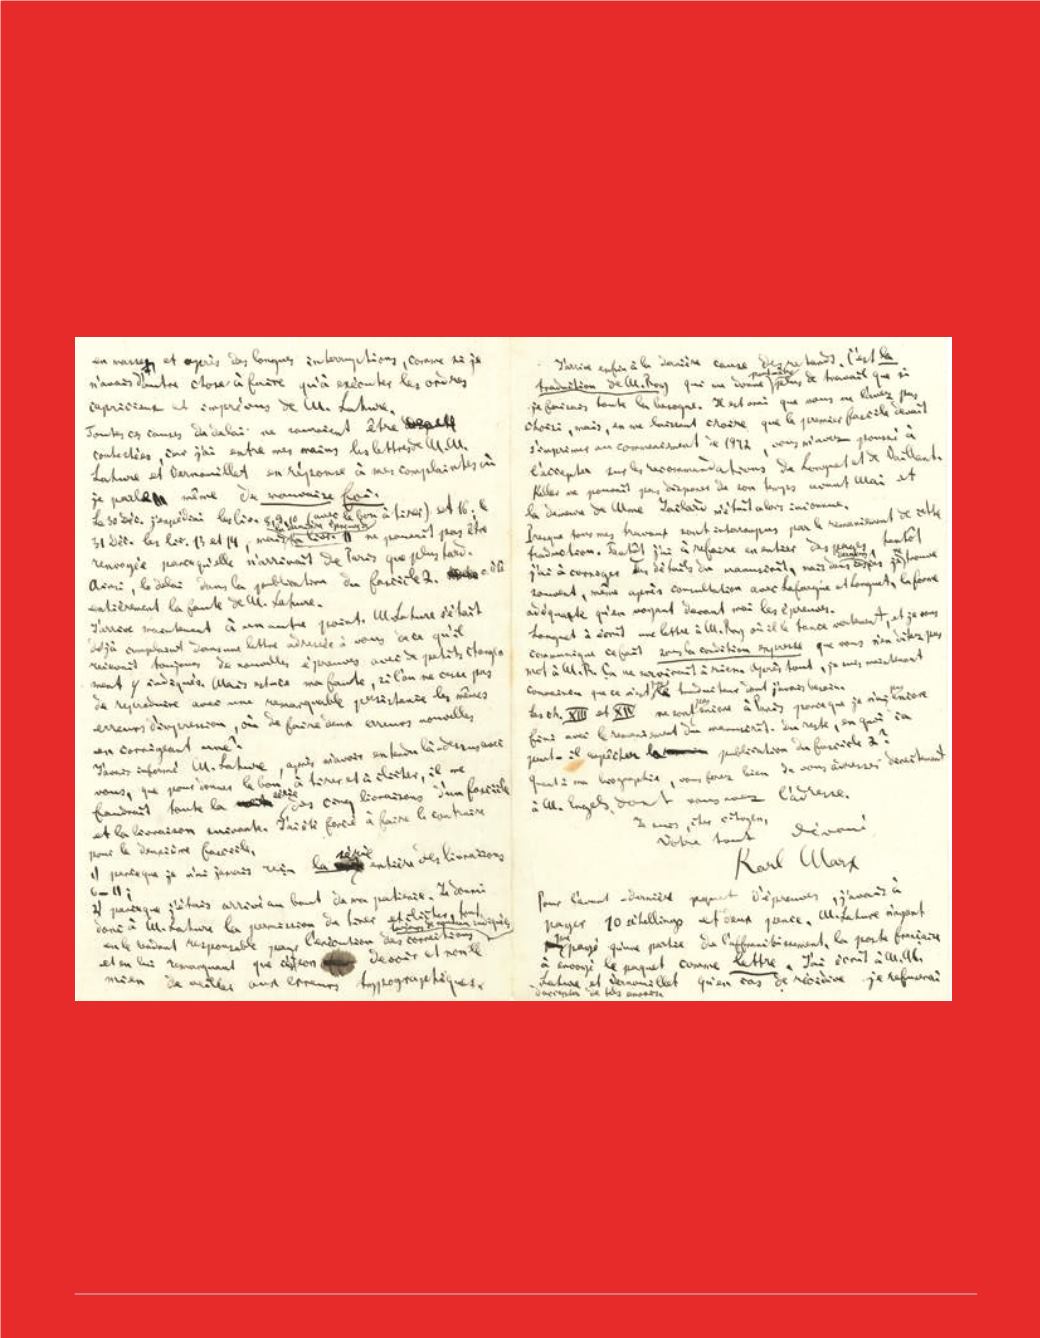 en masse, et après des longues interruptions, comme si je
n'avais d'autre chose à faire qu'à exécuter les ordres
capricieux et imprévus de M. Lahure.
Toutes ces causes du délai ne sauraient être
contestées, car j'ai entre mes mains les lettres de M.M.
Lahure et Vernouillet en réponse à mes complaintes où
je parle même de mauvaise foi.
Le 30 déc. j'expédiai les liv. 8, 9, 10 (avec le bon à tirer) et 16; le
31 déc. les liv. 13 et 14, mais la liv. 11 ne pouvait pas être
renvoyée parcequ'elle n'arrivait de Paris que plus tard.
Ainsi, le délai dans la publication du fascicule 2. a été
entièrement la faute de M. Lahure.
J'arrive maintenant à un autre point. M. Lahure s'était
déjà complaint dans une lettre adressée à vous de ce qu'il
recevait toujours de nouvelles épreuves avec de petits change-
ment y indiqués. Mais est-ce ma faute, si l'on ne cesse pas
de reproduire avec une remarquable persistance les mêmes
erreurs d'impression, ou de faire deux erreurs nouvelles
en corrigeant une?
J'avais informé M. Lahure, après m'avoir entendu là-dessus avec
vous, que pour donner le bon à tirer et à clicher, il me
faudrait toute la série des cinq livraisons d'un fascicule
et la livraison suivante. J'ai été forcé à faire le contraire
pour le deuxième fascicule,
1) parceque je n'ai jamais reçu la série entière des livraisons
6-11;
2) parceque j'étais arrivé au bout de ma patience. Je donnai
donc à M. Lahure la permission de tirer et clicher, tout
en le rendant responsable pour l'exécution des corrections
et en lui remarquant que c'est son devoir et non le
mien de veiller aux erreurs typographiques.
J'arrive enfin à la dernière cause des retards. C'est la
traduction de M. Roy qui me donne plus de travail que si
je faisais toute la besogne. Il est vrai que vous ne l'avez pas
choisi, mais, en me laissant croire que le premier fascicule devait
s'imprimer au commencement de 1972, vous m'avez poussé à
l'accepter sur les recommandations de Longuet et de Vaillant.
Keller ne pouvait pas disposer de son temps avant Mai et
la demeure de Mme était alors inconnue.
Presque tous mes travaux sont interrompus par le remaniement de cette
traduction. Tantôt j'ai à refaire en entier des pages, tantôt
j'ai à corriger les détails du manuscrit, mais dans ces j'y trouve
souvent, même après consultation avec Lafargue et Longuet, la forme
adéquate qu'en voyant devant moi les épreuves.
Longuet a écrit une lettre à M. Roy où il le tance vertement, et je vous
communique ce fait sous la condition expresse que vous n'en disiez pas
mot à M. R. Ça ne servirait à rien. Après tout, je suis maintenant
convaincu que ce n'est pas le traducteur dont j'avais besoin.
Les ch. XIII et XIV ne sont pas encore à Paris parceque je n'ai pas encore
fini avec le remaniement du manuscrit. Du reste, en quoi ça
peut-il empêcher la publication du fascicule 2?
Quant à ma biographie, vous ferez bien de vous adresser directement
à M. Engels dont vous avez l'adresse.
Je suis, cher citoyen,
Votre tout dévoué
Karl Marx
Pour l'avant-dernière paquet d'épreuves, j'avais à
payer 10 schellings et deux pence. M. Lahure n'ayant
payé qu'une partie de l'affranchissement, la poste française
a envoyé le paquet comme lettre. J'ai écrit à M.M.
Lahure et Vernouillet qu'en cas de récidive je refuserai
d'accepter de tels envois.